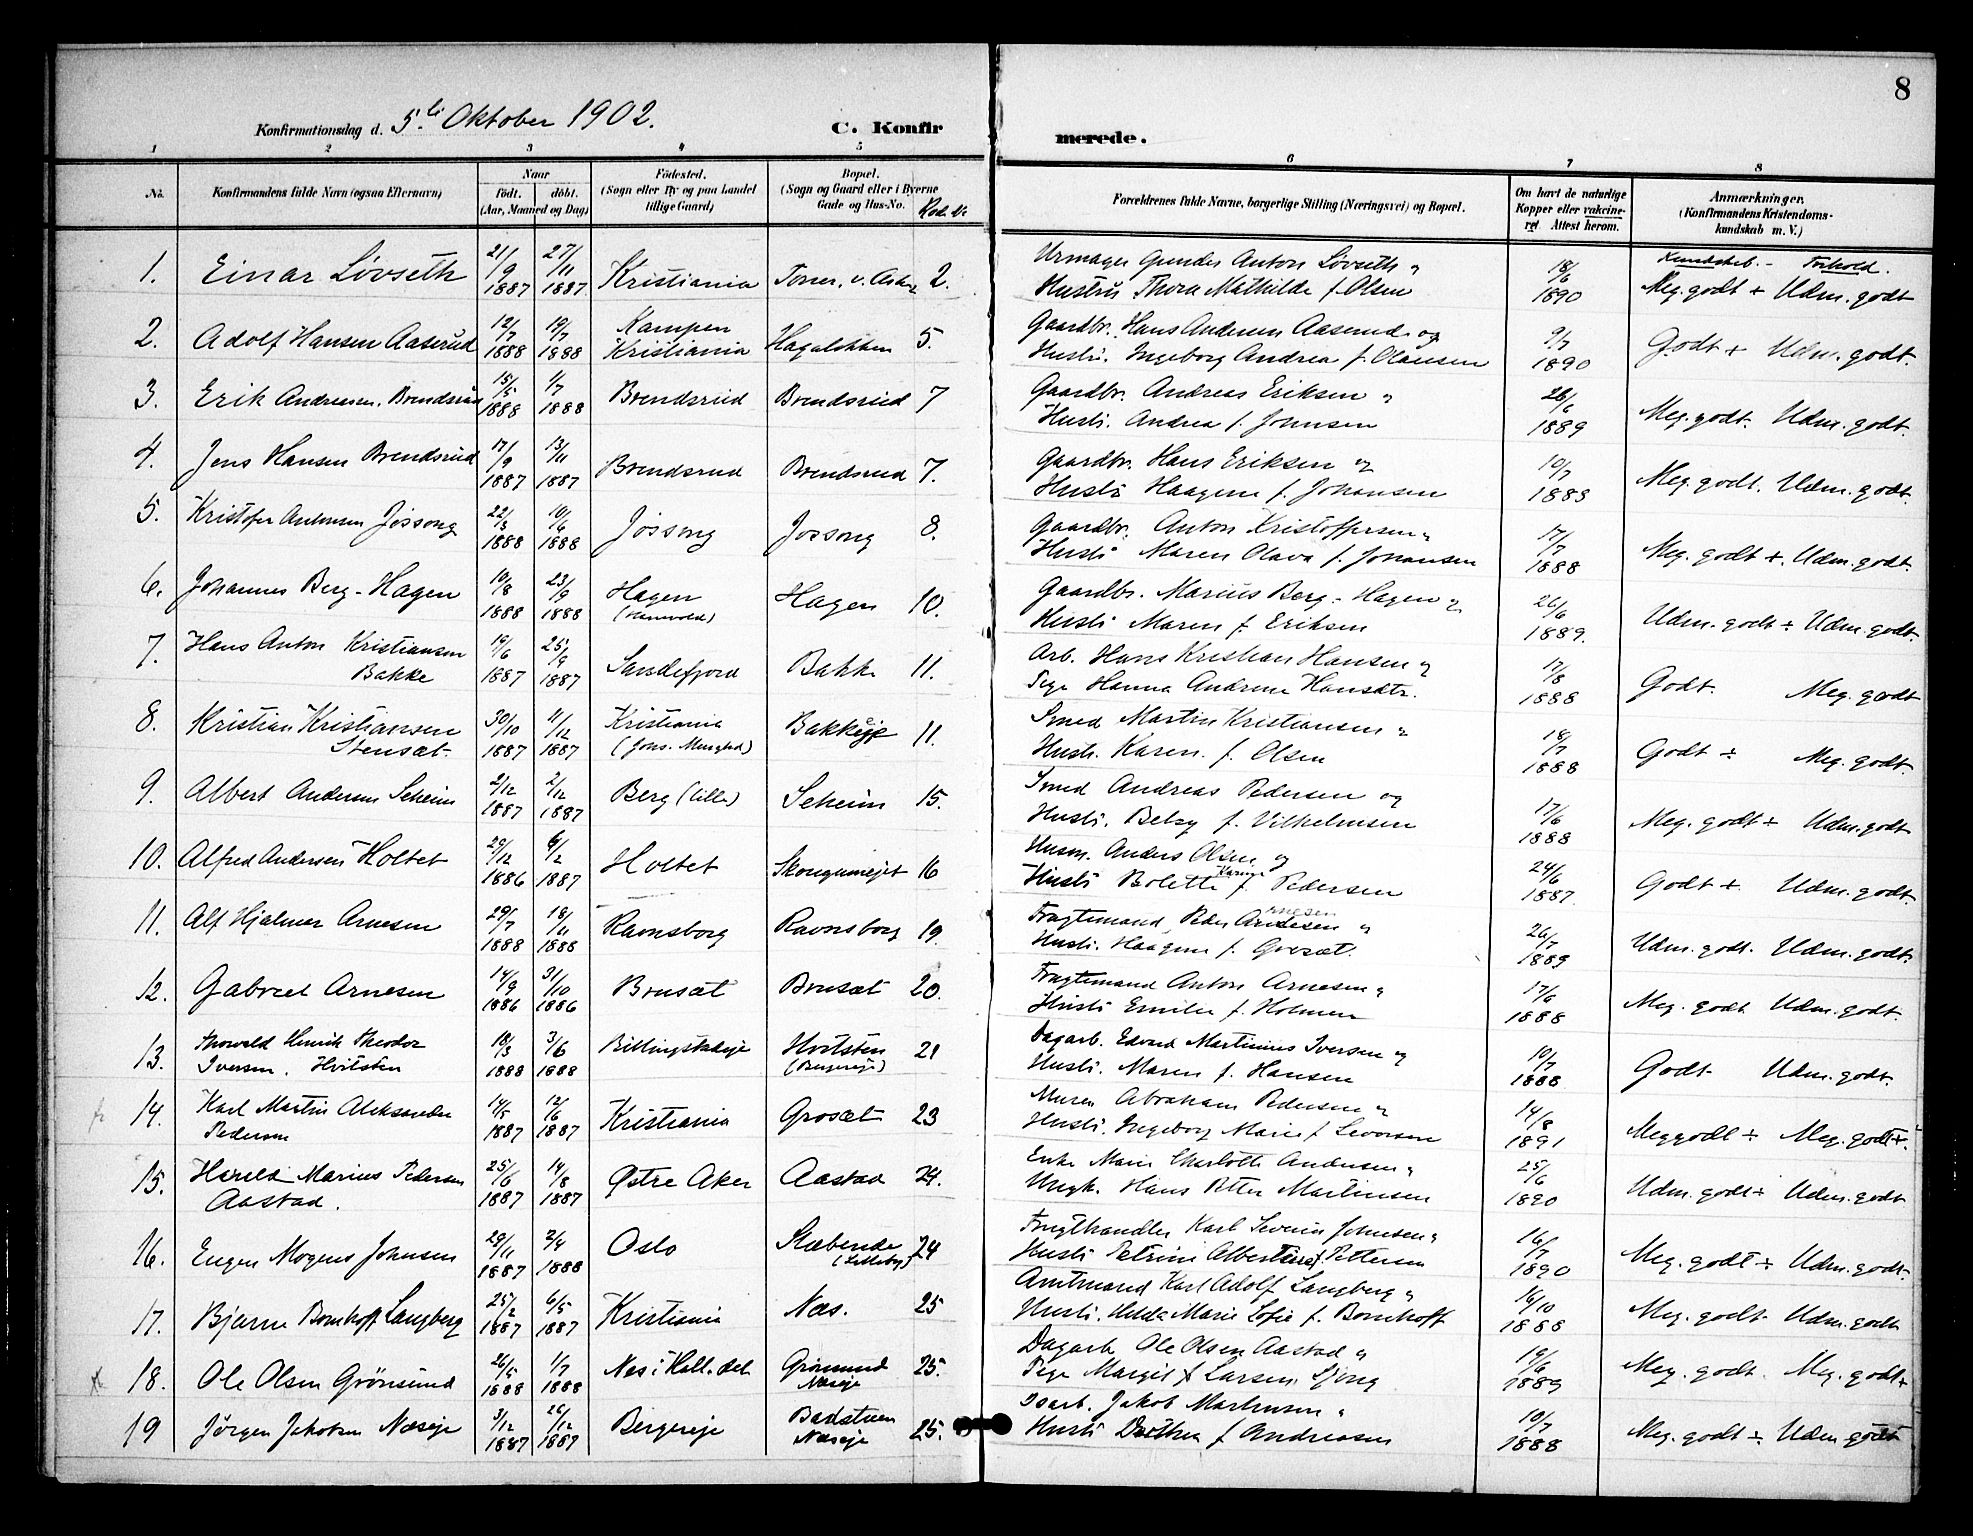 8
Konfirmationsdag d. 5te Oktober 1902. C. Konfirmerede.
1 2 3 4 5 6 7 8
No. Konfirmandens fulde Navn (ogsaa Efternavn) Naar født. døbt. (Aar, Maaned og Dag) Fødested. (Sogn eller By og paa Landet tillige Gaard) Bopæl. (Sogn og Gaard eller i Byerne Gade og Hus-No. Forældrenes fulde Navne, borgerlige Stilling (Næringsvei) og Bopæl. Om havt de naturlige Kopper eller vakcineret Attest herom. Anmærkninger. (Konfirmandens Kristendomskundskab m. V.)
Kundskab. - Forhold.
1. Einar Lövseth 21/9 1887 27/11 1887 Kristiania 2. Urmager Gunder Anton Lövseth og Hustru Thora Mathilde f. Olsen 18/6 1890 Meg. godt + Udm. godt
2. Adolf Hansen Aaserud 12/7 1888 19/7 1888 Kampen Kristiania Hagalökken 5. Gaardbr. Hans Andersen Aaserud og Hustr. Ingeborg Andrea f. Olausen 9/7 1890 Godt + Udm. godt.
3. Erik Andreasen Brendsrud 15/5 1888 1/7 1888 Brendsrud Brendsrud 7 Gaardbr. Andreas Eriksen og Hustr. Andrea f. Johnsen 26/6 1889 Meg. godt. Udm. godt.
4. Jens Hansen Brendsrud 17/9 1887 13/11 1887 Brendsrud Brendsrud 7. Gaardbr. Hans Eriksen og Hustr. Haagine f. Johansen 10/7 1889 Meg. godt. Udm. godt.
5. Kristofer Antonsen Jössong 22/3 1888 10/6 1888 Jössong Jössong 8. Gaardbr. Anton Kristoffersen og Hustr. Maren Olava f. Johansen 17/7 1888 Meg. godt +. Udm. godt.
6. Johannes Berg-Hagen 10/8 1888 23/9 1888 Hagen Hagen 10. Gaardbr. Marius Berg-Hagen og Hustr. Maren f. Eriksen 26/6 1889. Udm. godt ÷ Udm. godt.
7. Hans Anton Kristiansen Bakke 19/6 1887 25/9 1887 Sandefjord Bakke 11. Arb. Hans Kristian Hansen og Pige Hanna Andrine Hansdtr. 17/8 1888 Godt. Meg. godt
8. Kristian Kristiansen Stensæt. 30/10 1887 11/12 1887 Kristiania Bakkeje 11. Smed Martin Kristiansen og Hustr. Karen f. Olsen 18/7 1888 Godt ÷ Meg. godt.
9. Albert Andersen Seheim 2/12 1887 2/12 1887 Berg (lille) Seheim 15. Smed Andreas Pedersen og Hustr. Betsy f. Vilhelmsen 17/6 1888 Meg. godt + Udm. godt
10. Alfred Andersen Holtet 29/12 1886 6/2 1887 Holtet Skougumejet 16 Husm. Anders Olsen og Hustr. Bolette Karine f. Pedersen 24/6 1887. Godt + Udm. godt.
11. Alf Hjalmer Arnesen 29/7 1888 18/11 1888 Ravnsborg Ravnsborg 19. Fragtemand Peder Arnesen og Hustr. Haagine f. Grosæt. 26/7 1889 Udm. godt. Udm. godt.
12. Gabriel Arnesen 14/9 1886 31/10 1886 Brusæt Brusæt 20. Fragtemand Anton Arnesen og Hustr. Emilie f. Holmen 17/6 1888 Meg. godt Udm. godt.
13. Thorvald Henrik Theodor Iversen. Hvitsten 18/3 1888 3/6 1888 Billingstadeje Hvitsten 21 Dagarb. Edvard Martinius Iversen og Hustr. Maren f. Hansen 10/7 1888 Godt Udm. godt.
14. Karl Martin Aleksander Pedersen 14/5 1887 12/6 1887 Kristiania Grosæt 23 Murer Abraham Pedersen og Hustr. Ingeborg Marie f. Levorsen 14/8 1891 Meg godt ÷ Meg. godt +.
15. Harald Marius Pedersen Aastad. 25/6 1887 14/8 1887 Østre Aker Aastad 24. Enke Marie Charlotte Andersen og Ungk. Hans Petter Martinsen 25/6 1890 Udm. godt ÷ Udm. godt
16. Eugen Mogens Johnsen 29/11 1887 2/4 1888 Oslo Slæbende 24 Frugthandler Karl Severin Johnsen og Hustr. Petrine Albertine f. Pettersen 16/7 1890 Meg. godt ÷ Udm. godt.
17. Bjarne Bomhoff Langberg 25/2 1887 6/5 1887 Kristiania Næs. 25 Amtmand Karl Adolf Langberg og Hustr. Hilda Marie Sofie f. Bomhoff 16/10 1888 Meg. godt Udm. godt
18. Ole Olsen Grönsund 26/5 1888 1/7 1888 Nes i Hall.dal Grönsund Næseje 25. Dagarb Ole Olsen Aastad og Pige Margit Larsen 19/6 1889 Meg. godt. Meg. godt +
19 Jörgen Jakobsen Næseje 3/12 1887 26/12 1887 Bergereje Badstuen Næseje 25. Jakob Markusen og Hustr. Dorthea f. Andreasen 10/7 1888 Meg. godt ÷. Udm. godt